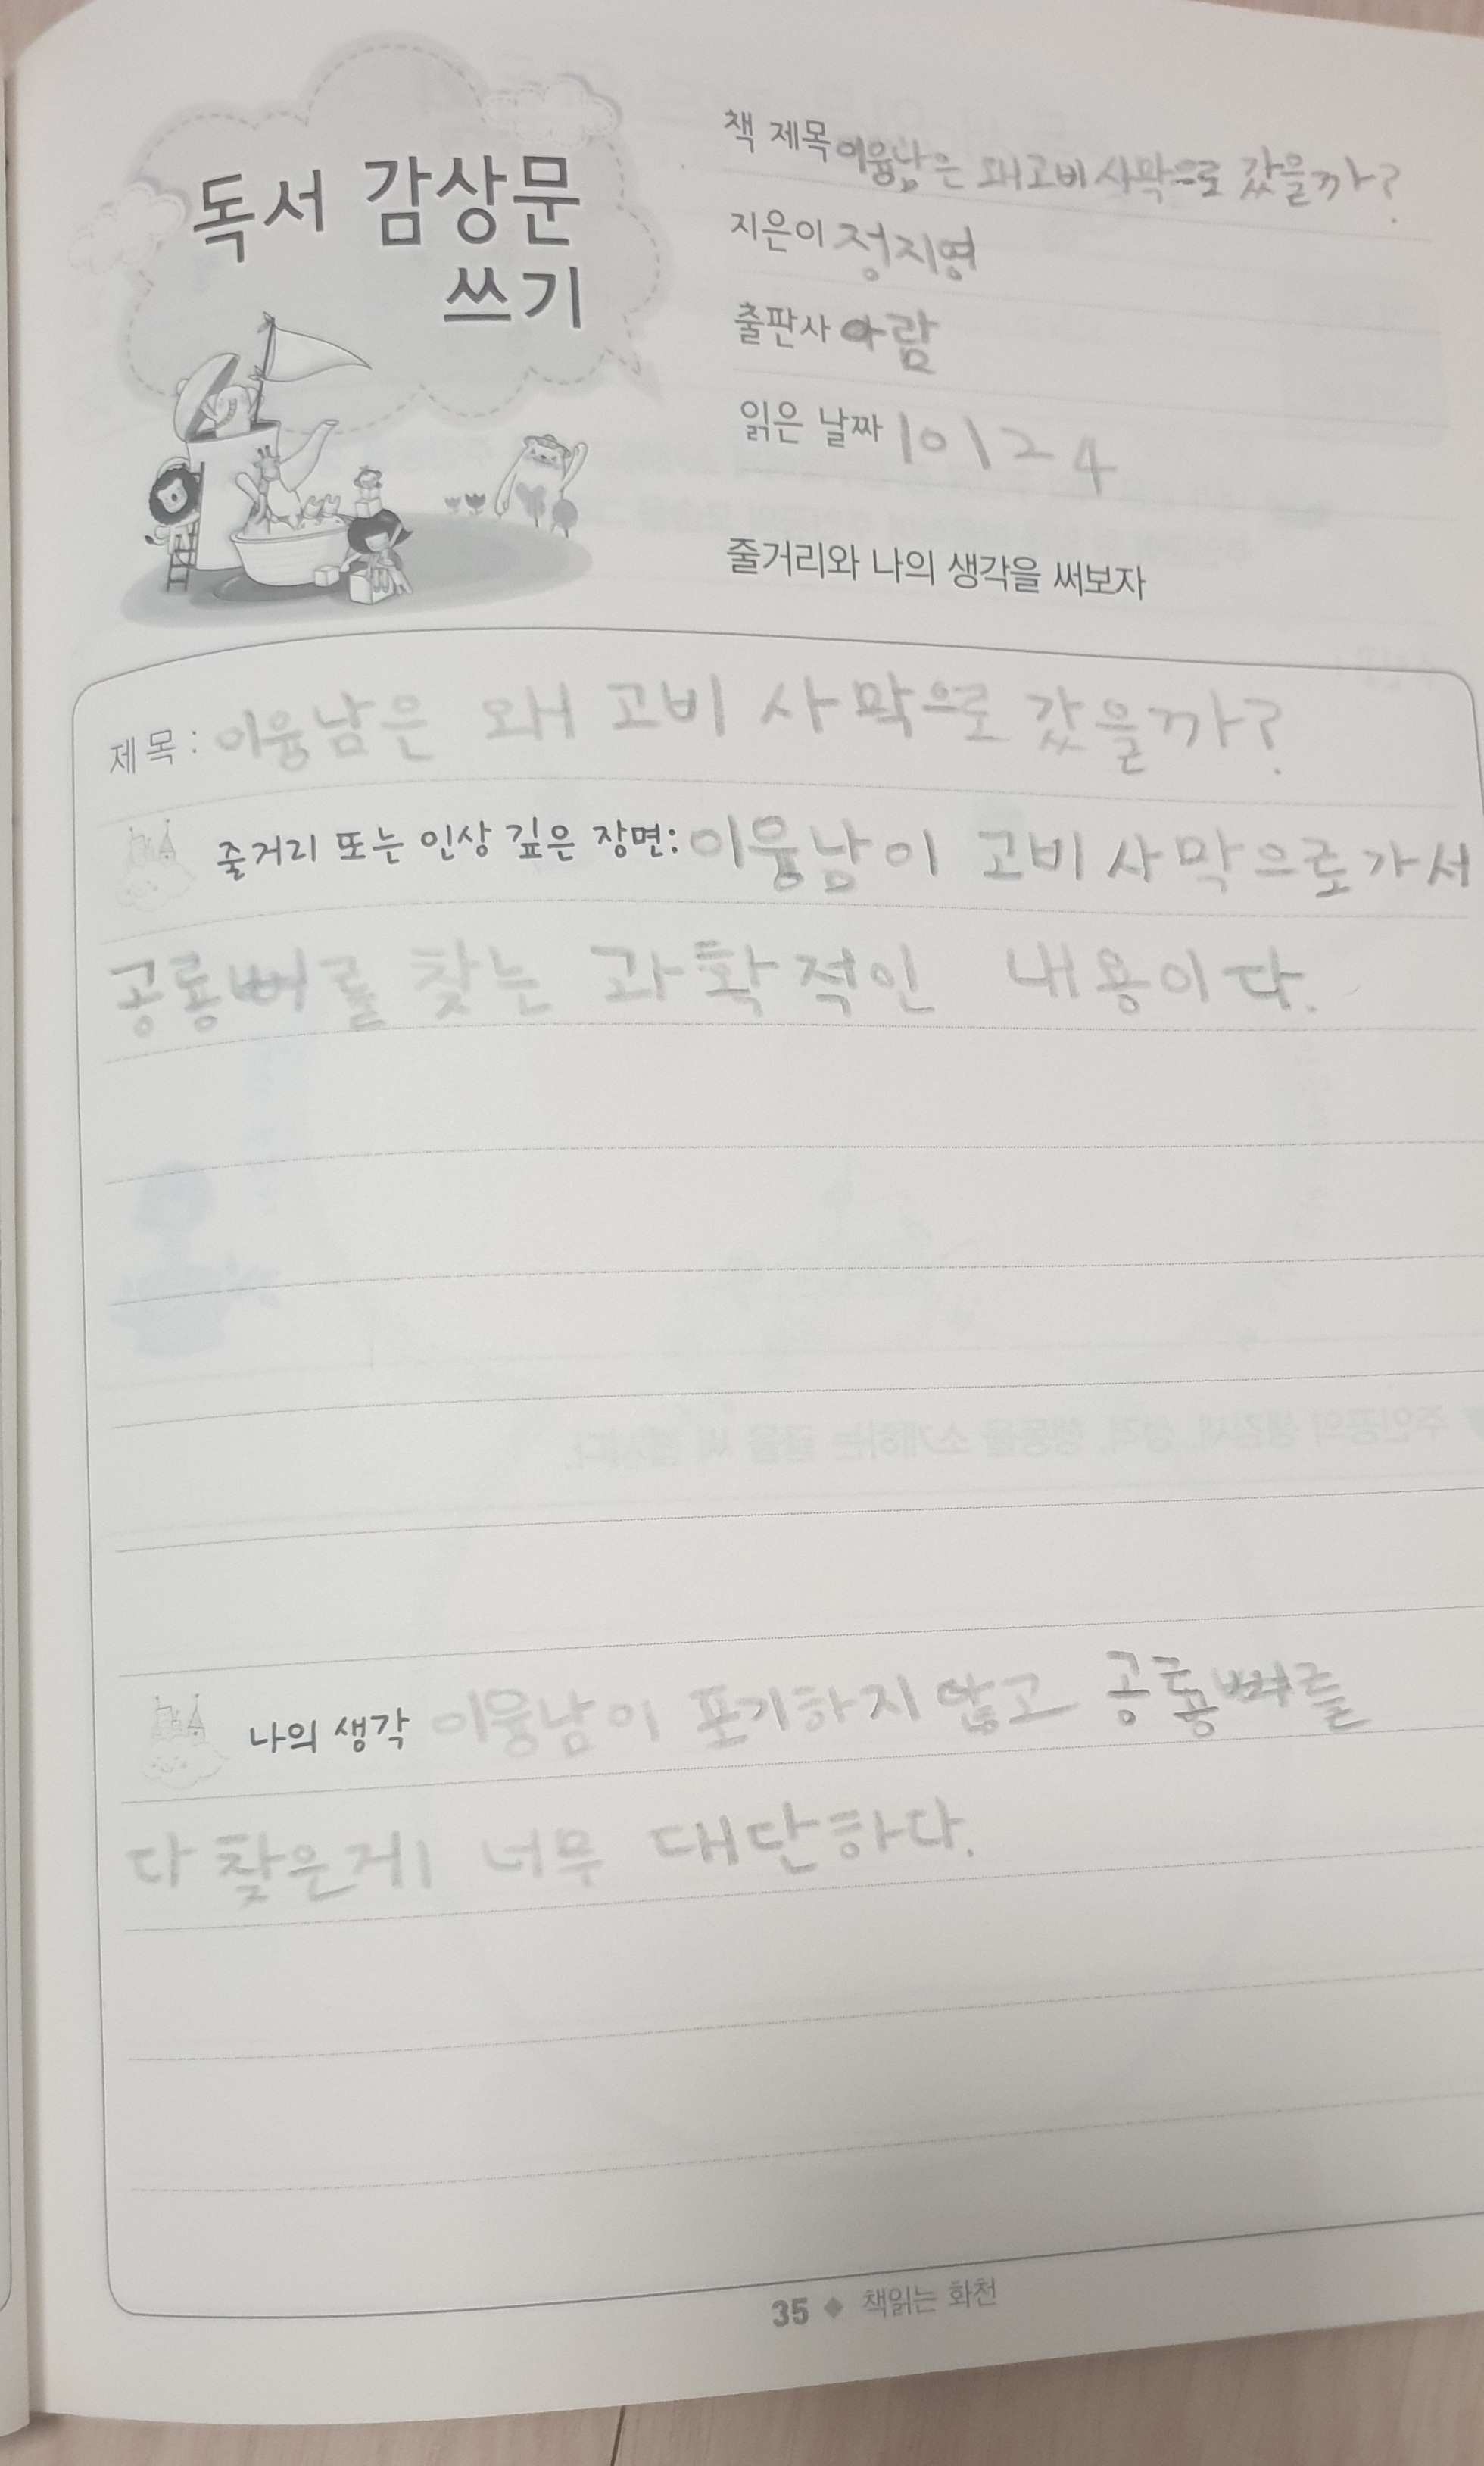 독서 감상문
쓰기
책 제목 이융남은 왜 고비 사막으로 갔을까?
지은이 정지영
출판사 아람
읽은 날짜 10 1 24
줄거리와 나의 생각을 써보자
제목: 이융남은 왜 고비 사막으로 갔을까?
줄거리 또는 인상 깊은 장면: 이융남이 고비사막으로가서
공룡뼈를 찾는 과학적인 내용이다.
나의 생각 이융남이 포기하지 않고 공룡뼈를
다 찾은게 너무 대단하다.
35 ◆ 책읽는 화천